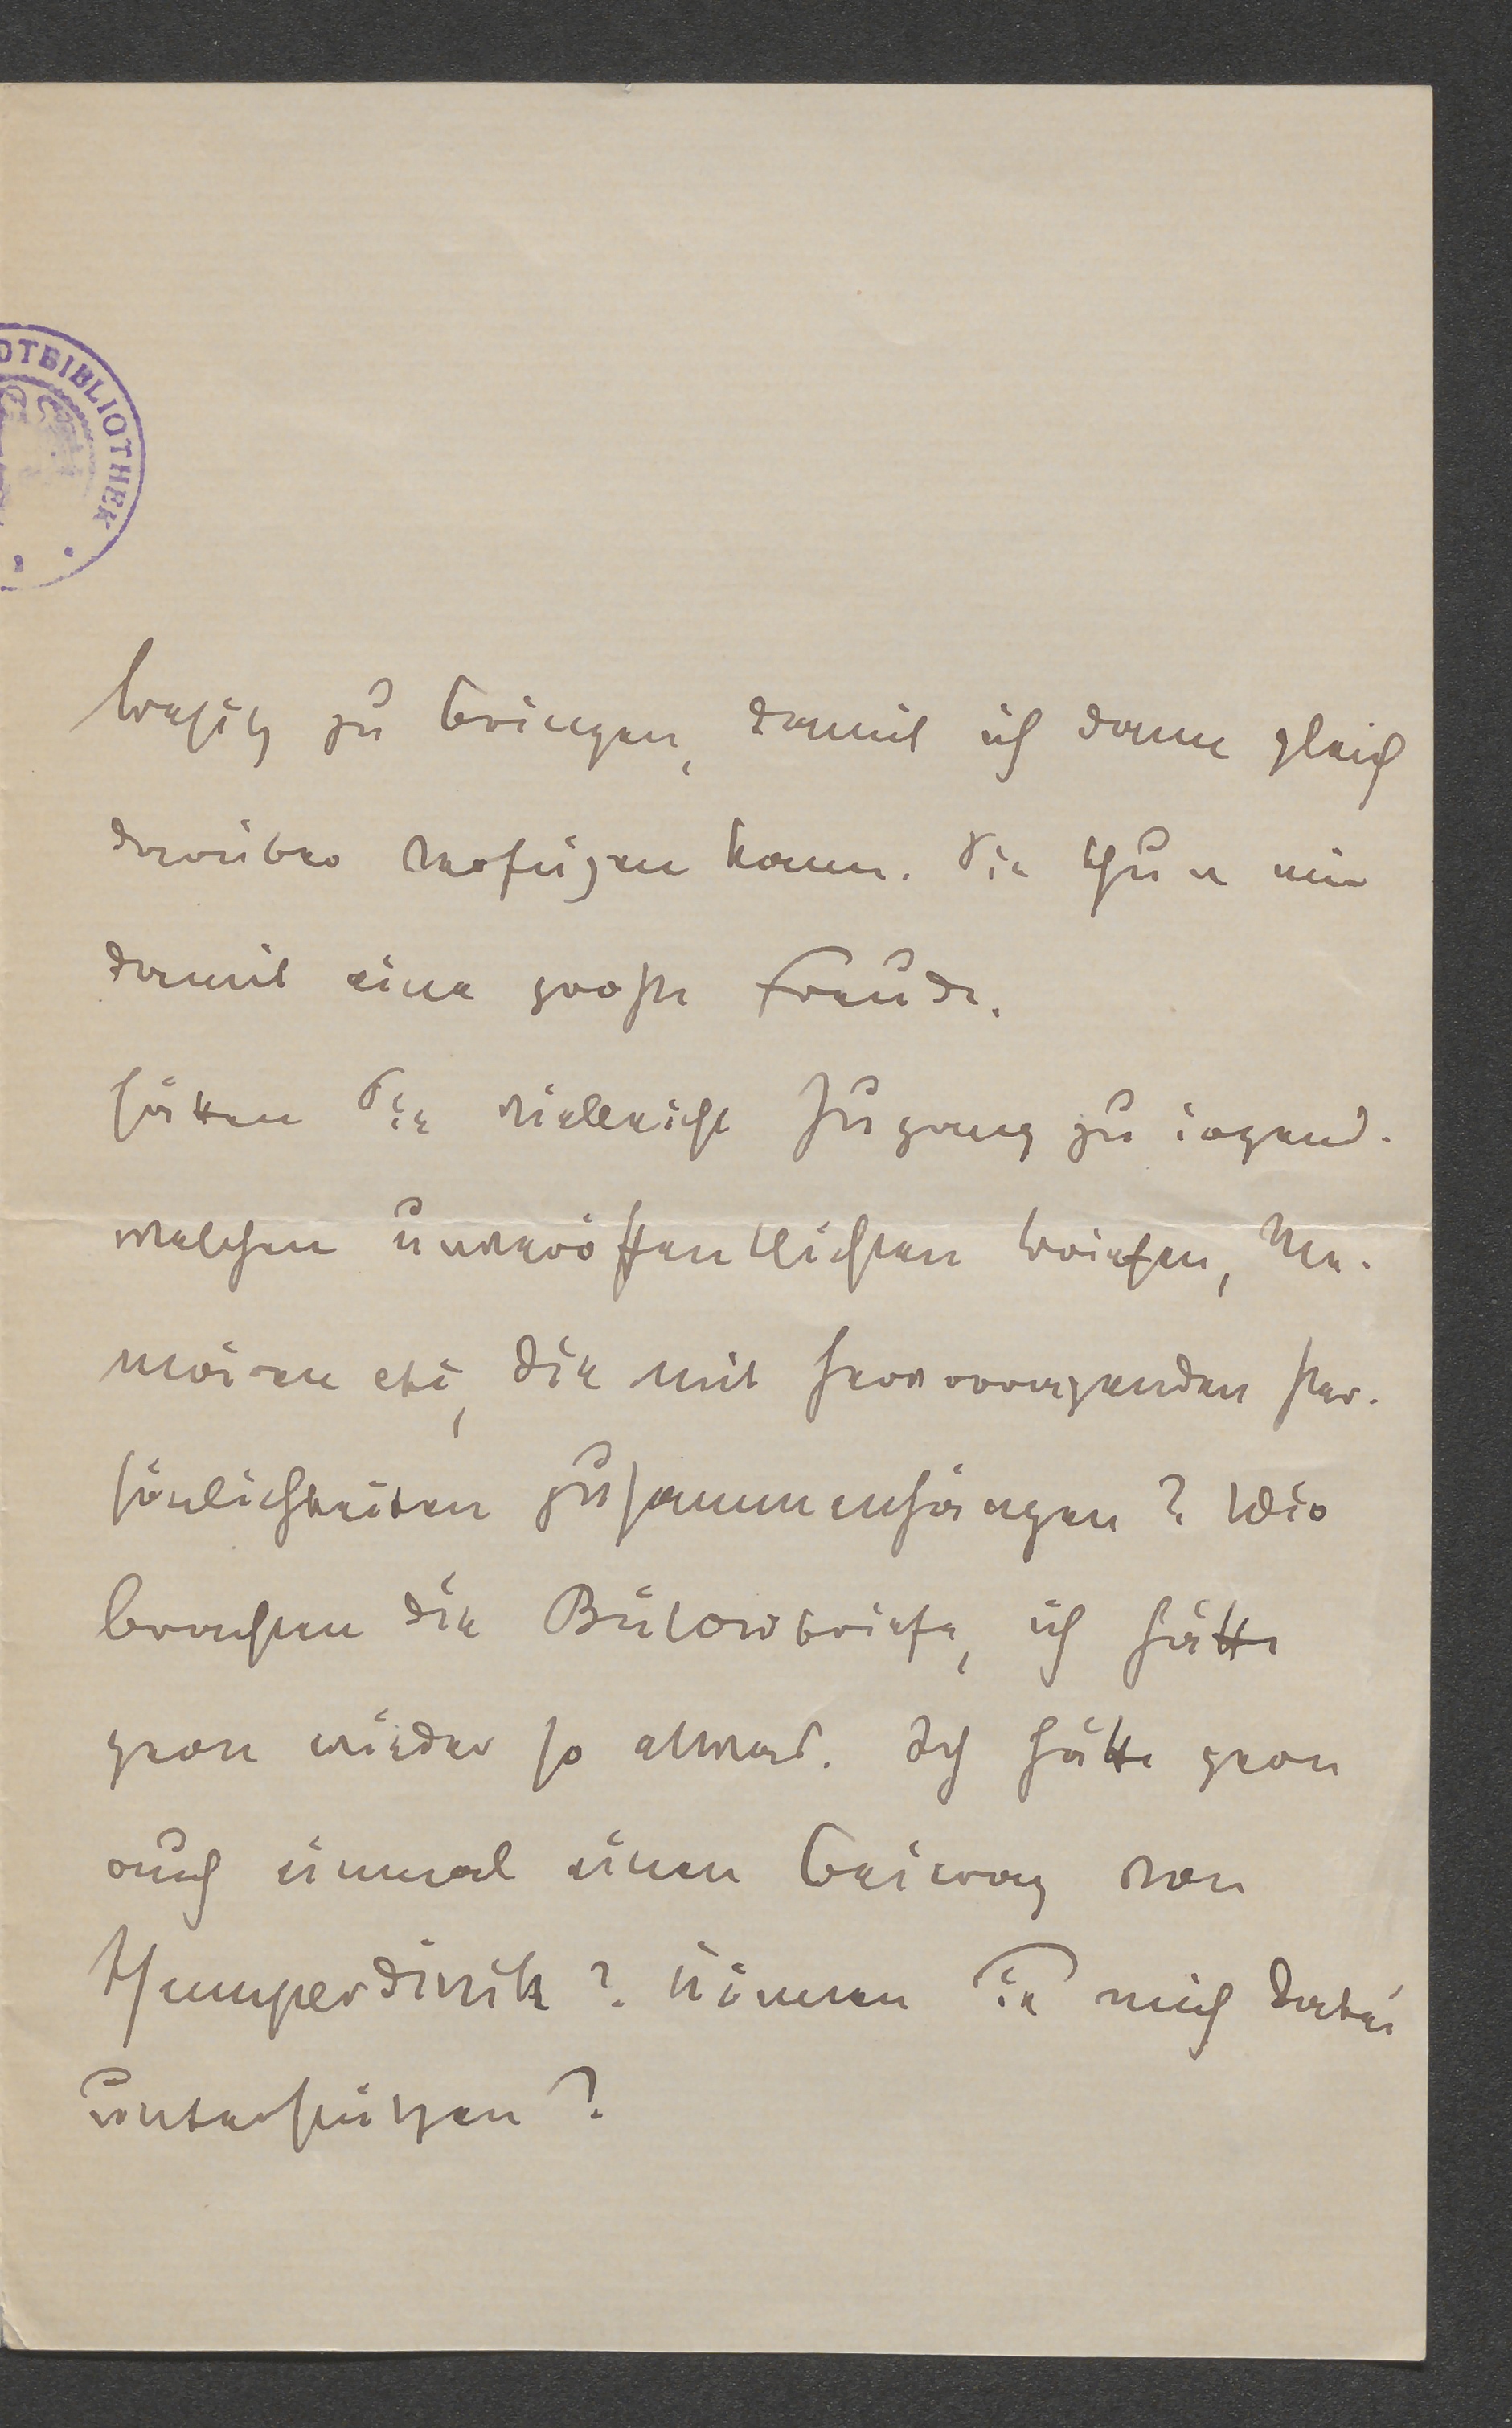 DTBIBLIOTHEK
besitz zu bringen, damit ich dann gleich
darüber verfügen kann. Sie thun mir
damit eine große Freude.
hätten Sie vielleicht Zugang zu irgend-
welchen unveröffentlichten briefen, Me-
moiren etc, die mit hervorragenden Per-
sönlichkeiten zusammenhängen? Wir
brachten die Bülowbriefe, ich hätte
gern wieder so etwas. Ich hätte gern
auch einmal einen beitrag von
Humperdinck? Können Sie mich dabei
unterstützen?